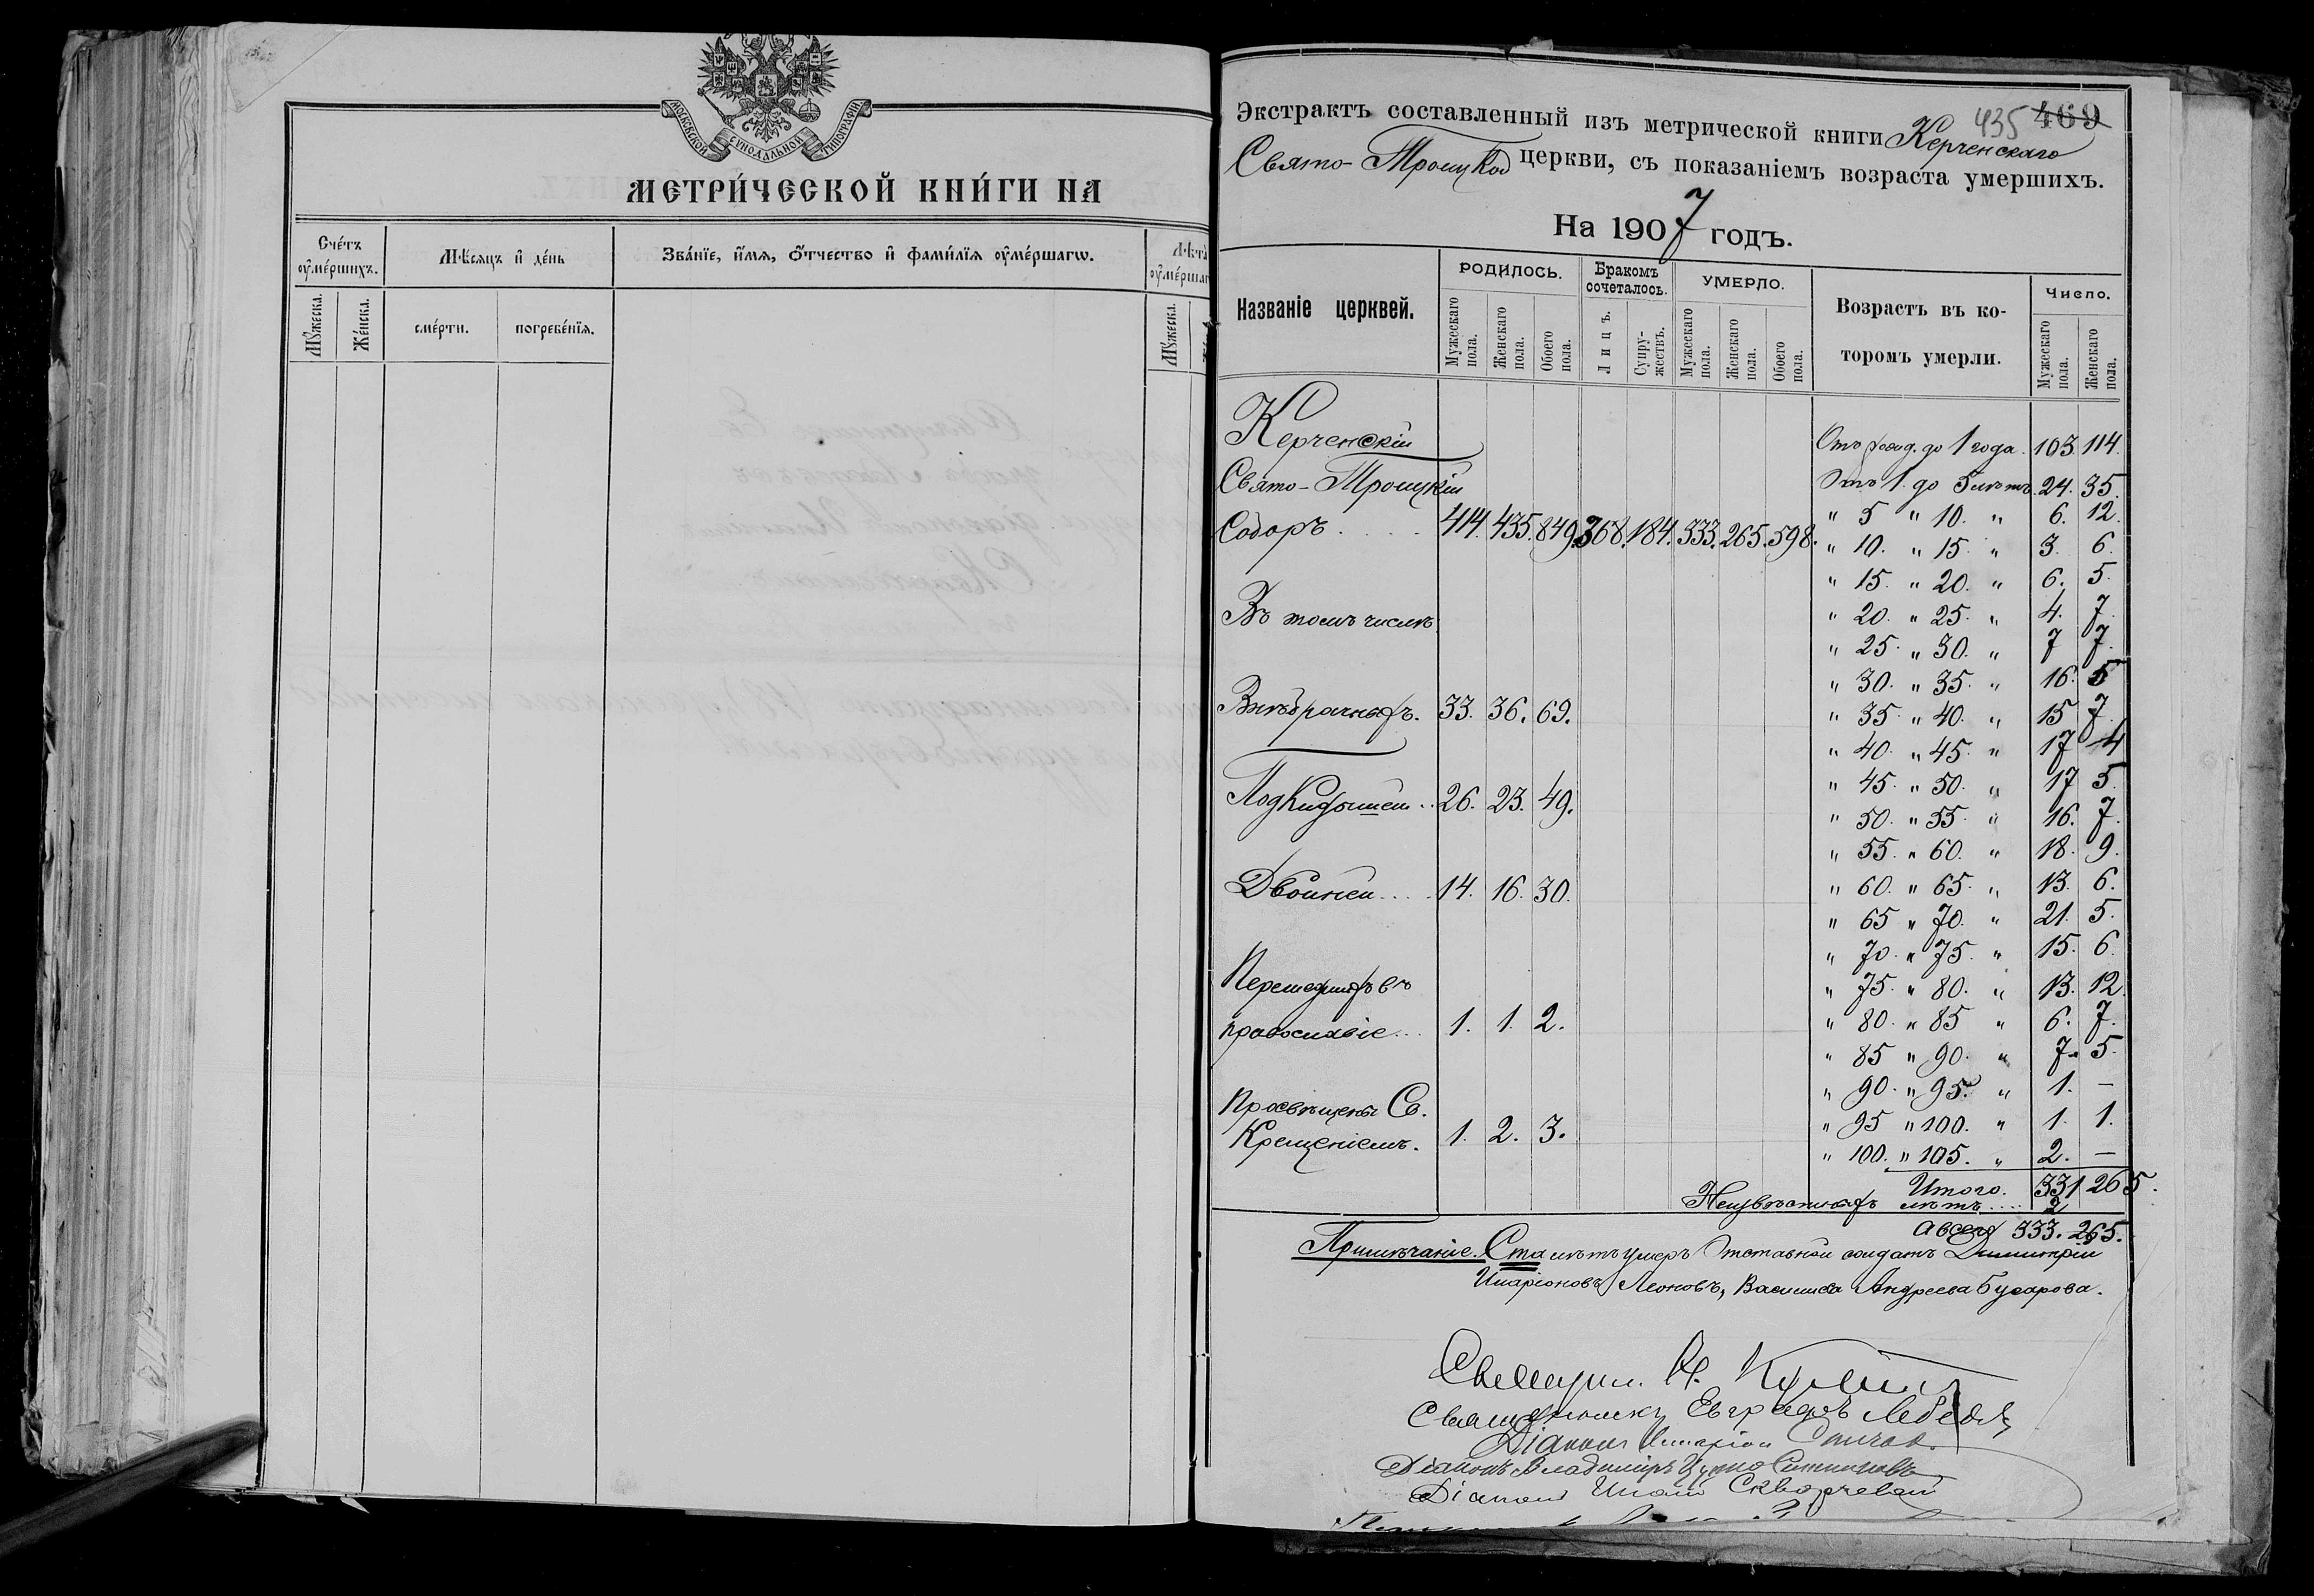 МОСКОВСКОЙ СУНОДАЛЬНОЙ ТИПОГРАФІИ
МЕТРИ́ЧЕСКОЙ КНИ́ГИ НА
Сче́тъ оу҆ме́ршихъ.
Мѣ́сяцъ и҆ де́нь
Зва́нїе, и҆́мя, ѻ҆́тчество и҆ фами́лїя оу҆ме́ршагѡ.
Лѣта
оу҆ме́ршаг
Мꙋ́жеска.
Же́нска.
сме́рти.
погребе́нїя.
Мꙋ́жеска.
435 469
Экстрактъ составленный изъ метрической книги Керченскаго
Свято-Троицкой церкви, съ показаніемъ возраста умершихъ.
На 1907 годъ.
Названіе церквей.
РОДИЛОСЬ.
Бракомъ сочеталось.
УМЕРЛО.
Возрастъ въ которомъ умерли.
Число.
Мужескаго пола.
Женскаго пола.
Обоего пола.
Лицъ.
Супружествъ.
Мужескаго пола.
Женскаго пола.
Обоего пола.
Мужескаго пола.
Женскаго пола.
Керченскій
Свято-Троицкій
Соборъ . . . . . 414. 435. 849. 368. 184. 333. 265. 598.
Въ томъ числѣ
Внѣбрачныхъ. 33. 36. 69.
Подкидышей .. 26. 23. 49.
Двойней.... 14. 16. 30.
Перешедшихъ въ
православіе... 1. 1. 2.
Просвѣщены Св.
Крещеніемъ. 1. 2. 3.
Отъ рожд. до 1 года. 103. 114.
Отъ 1. до 5 лѣтъ. 24. 35.
" 5 " 10. " 6. 12.
" 10. " 15. " 3. 6.
" 15. " 20. " 6. 5.
" 20. " 25. " 4. 7.
" 25. " 30. " 7 7.
" 30. " 35. " 16. 5
" 35. " 40. " 15 7.
" 40. " 45. " 17 4
" 45. " 50. " 17 5.
" 50. " 55. " 16. 7.
" 55. " 60. " 18. 9.
" 60. " 65. " 13. 6.
" 65 " 70. " 21. 5.
" 70. " 75. " 15. 6.
" 75. " 80. " 13. 12.
" 80. " 85 " 6. 7.
" 85 " 90. " 7. 5.
" 90. " 95. " 1. –
" 95 " 100. " 1. 1.
" 100. " 105. " 2. –
Итого. 331 265.
Неизвѣстныхъ лѣтъ.... 2
А всего 333. 265.
Примѣчаніе. Ста лѣтъ умеръ Отставной солдатъ Димитрій
Иларіоновъ Леоновъ, Василиса Андреева Бусарова.
Священникъ Евграфъ Лебедевъ
Діаконъ Иларіон
Діаконъ Владиміръ
Діаконъ Скворчевскій